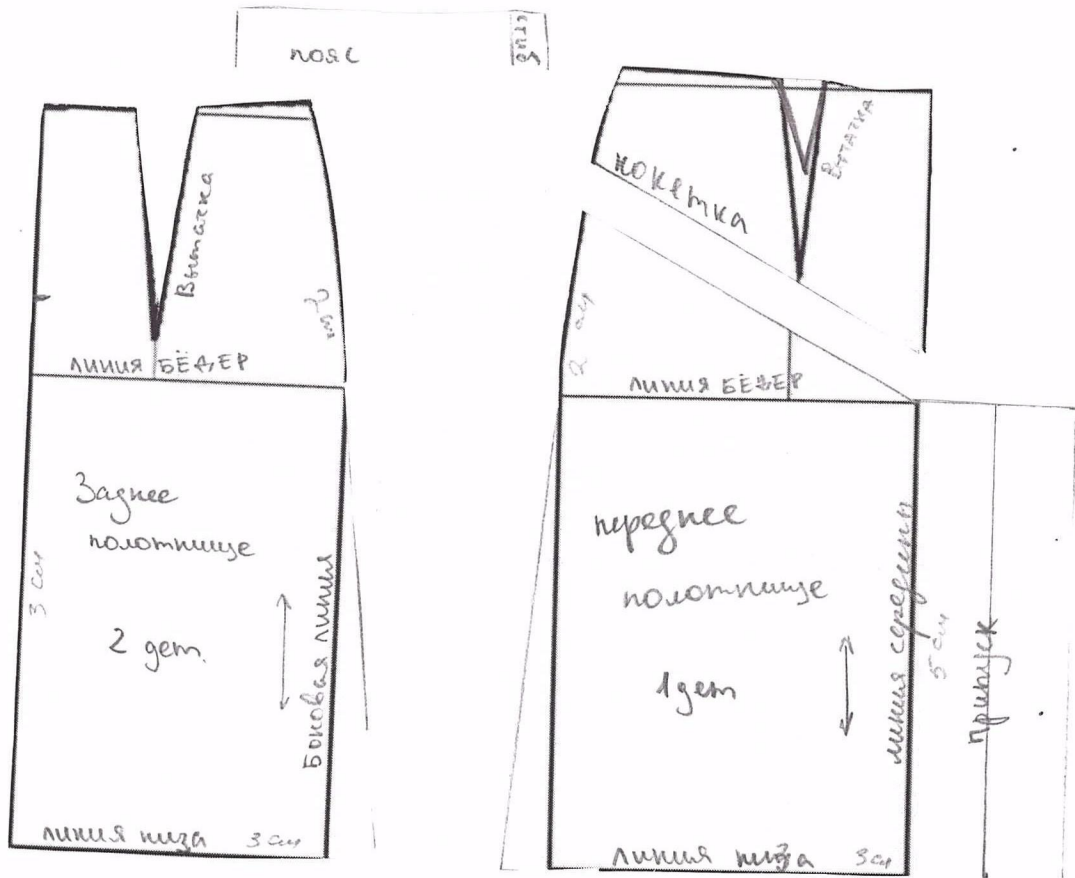 пояс
сгиб
Вытачка
2 см
линия БЁДЕР
Заднее
полотнище
2 дет.
3 см
Боковая линия
линия низа 3 см
Вытачка
кокетка
2 см
линия БЁДЕР
переднее
полотнище
1 дет
линия середины
5 см
припуск
линия низа 3 см